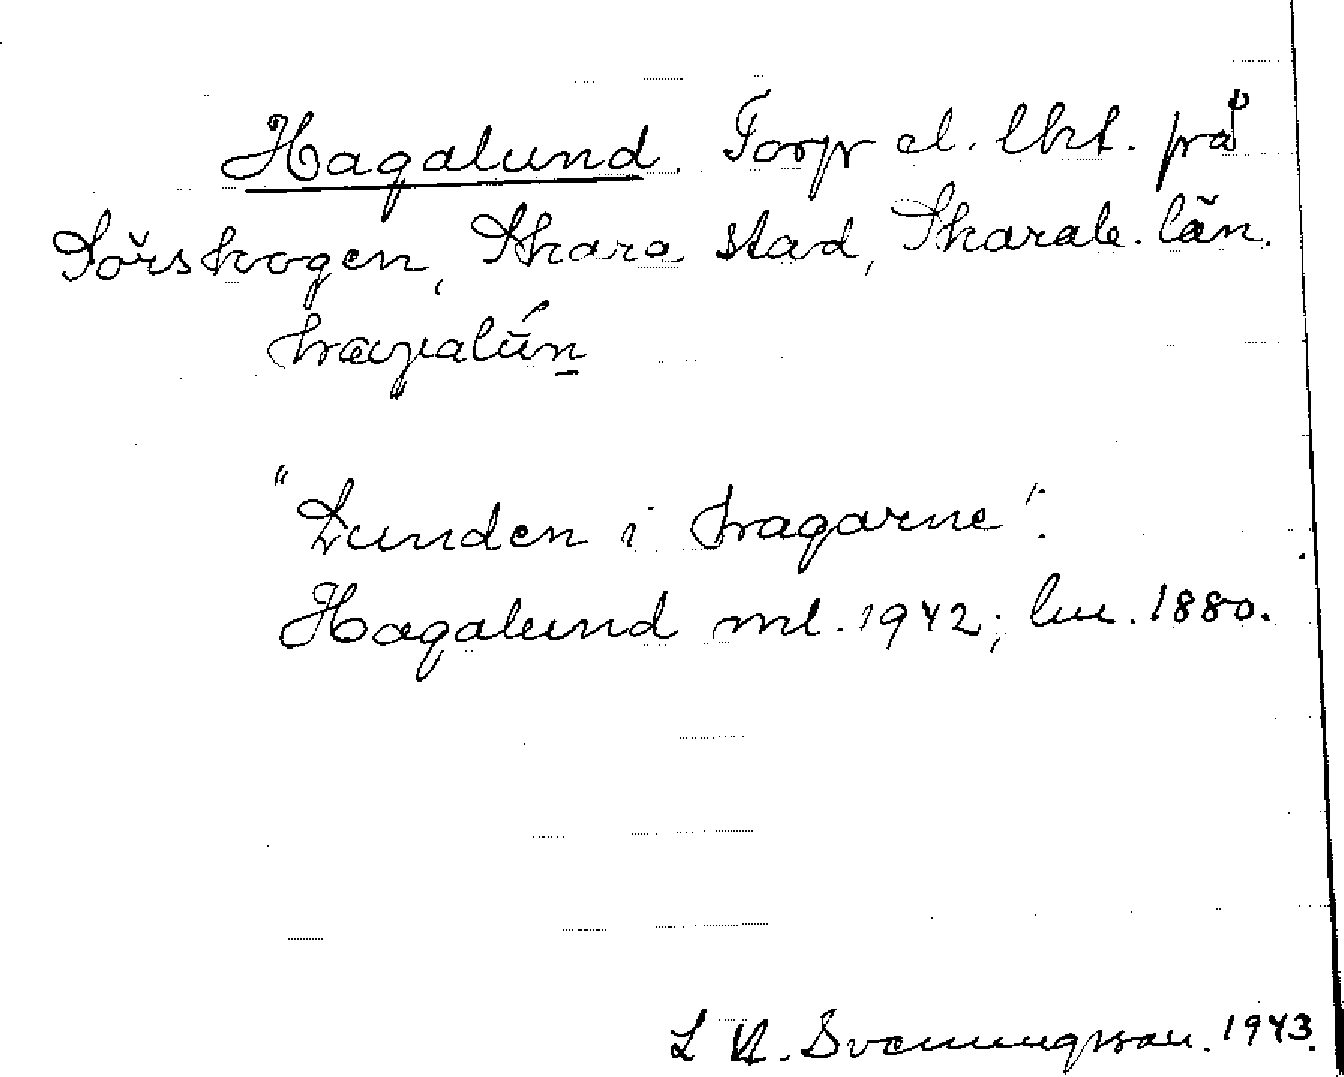 Hagalund. Torp el. lht. på
Sörskogen, Skara stad, Skarab. län.
"Lunden i hagarne".
Hagalund ml. 1942; hu. 1880.
Svenningsson. 1943.